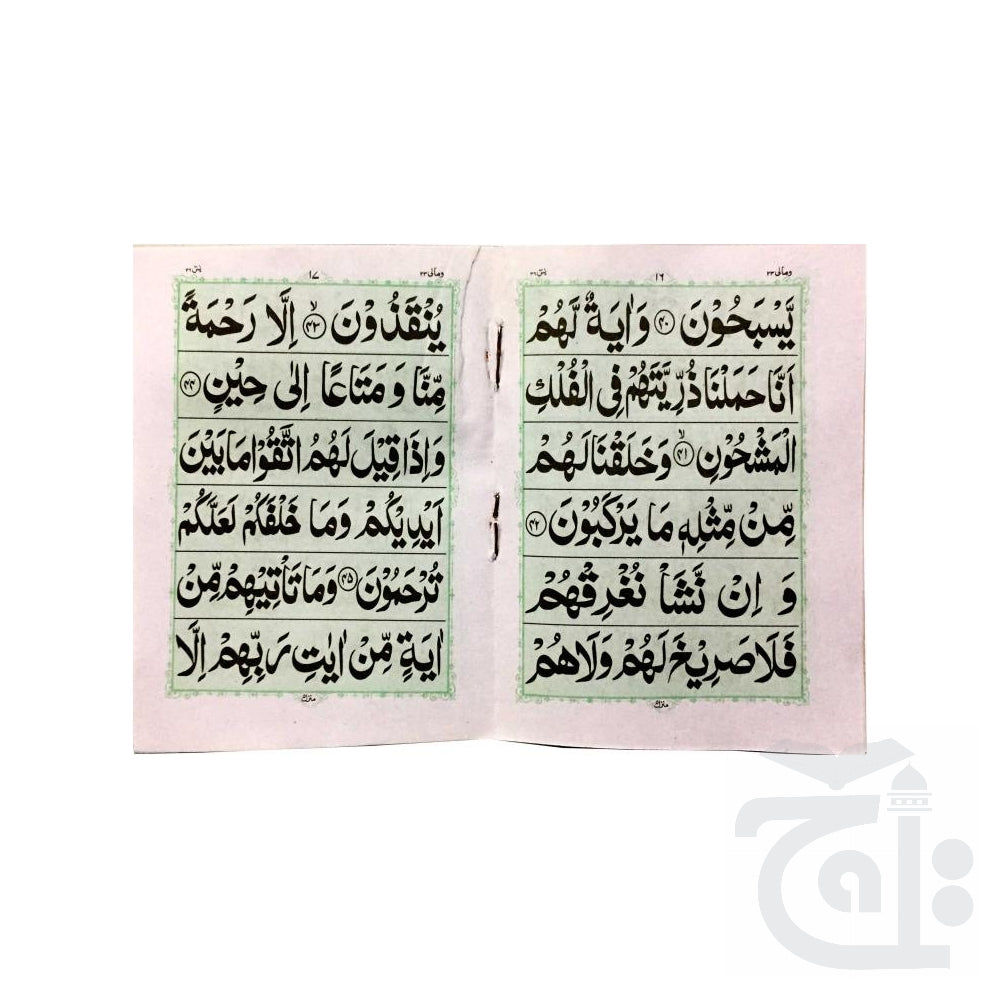 ومالی ٢٣ ١٦ یٰسٓ ٣٦
یَّسْبَحُوْنَ ﴿٤٠﴾ وَاٰیَةٌ لَّهُمْ
اَنَّا حَمَلْنَا ذُرِّیَّتَهُمْ فِی الْفُلْكِ
الْمَشْحُوْنِ ﴿٤١﴾ۙ وَخَلَقْنَا لَهُمْ
مِّنْ مِّثْلِهٖ مَا یَرْكَبُوْنَ ﴿٤٢﴾
وَ اِنْ نَّشَاْ نُغْرِقْهُمْ
فَلَا صَرِیْخَ لَهُمْ وَلَا هُمْ
ومالی ٢٣ ١٧ یٰسٓ ٣٦
یُنْقَذُوْنَ ﴿٤٣﴾ۙ اِلَّا رَحْمَةً
مِّنَّا وَ مَتَاعًا اِلٰی حِیْنٍ ﴿٤٤﴾
وَاِذَا قِیْلَ لَهُمُ اتَّقُوْا مَا بَیْنَ
اَیْدِیْكُمْ وَمَا خَلْفَكُمْ لَعَلَّكُمْ
تُرْحَمُوْنَ ﴿٤٥﴾ وَمَا تَاْتِیْهِمْ مِّنْ
اٰیَةٍ مِّنْ اٰیٰتِ رَبِّهِمْ اِلَّا